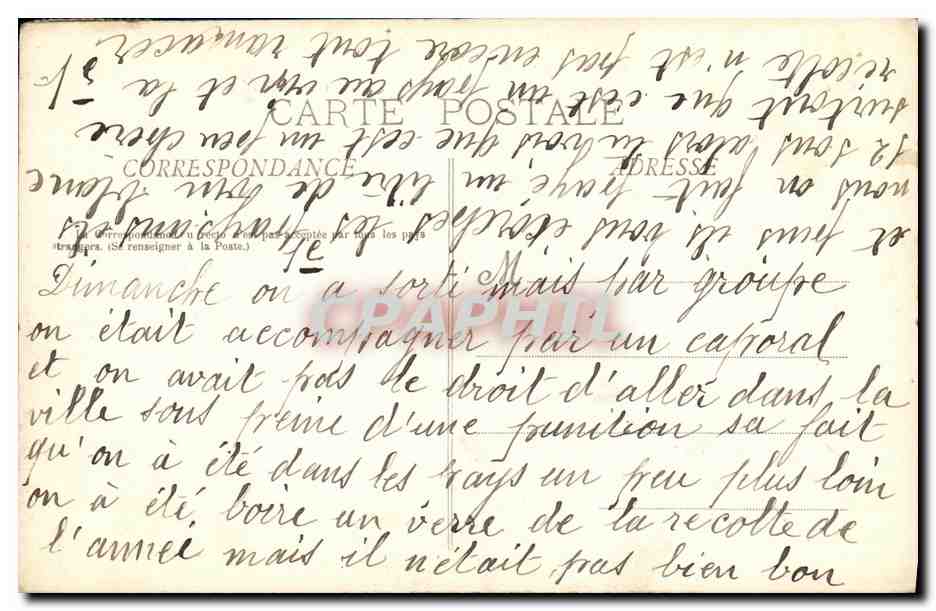 CARTE POSTALE
CORRESPONDANCE
ADRESSE
La Correspondance au recto n'est pas acceptée par tous les pays
étrangers. (Se renseigner à la Poste.)
M
Dimanche on a sorti mais par groupe
on était accompagner par un caporal
et on avait pas le droit d'aller dans la
ville sous peine d'une punition sa fait
qu'on à été dans les pays un peu plus loin
on à été boire un verre de la recolte de
l'année mais il n'était pas bien bon
et puis ils vous écorches les paysans ils
nous on fait payé un litre de vin blanc
12 sous alors tu vois que c'est un peu chere
surtout que c'est un pays au vin et la
recolte n'est pas encore tout ramacer
CPAPHIL